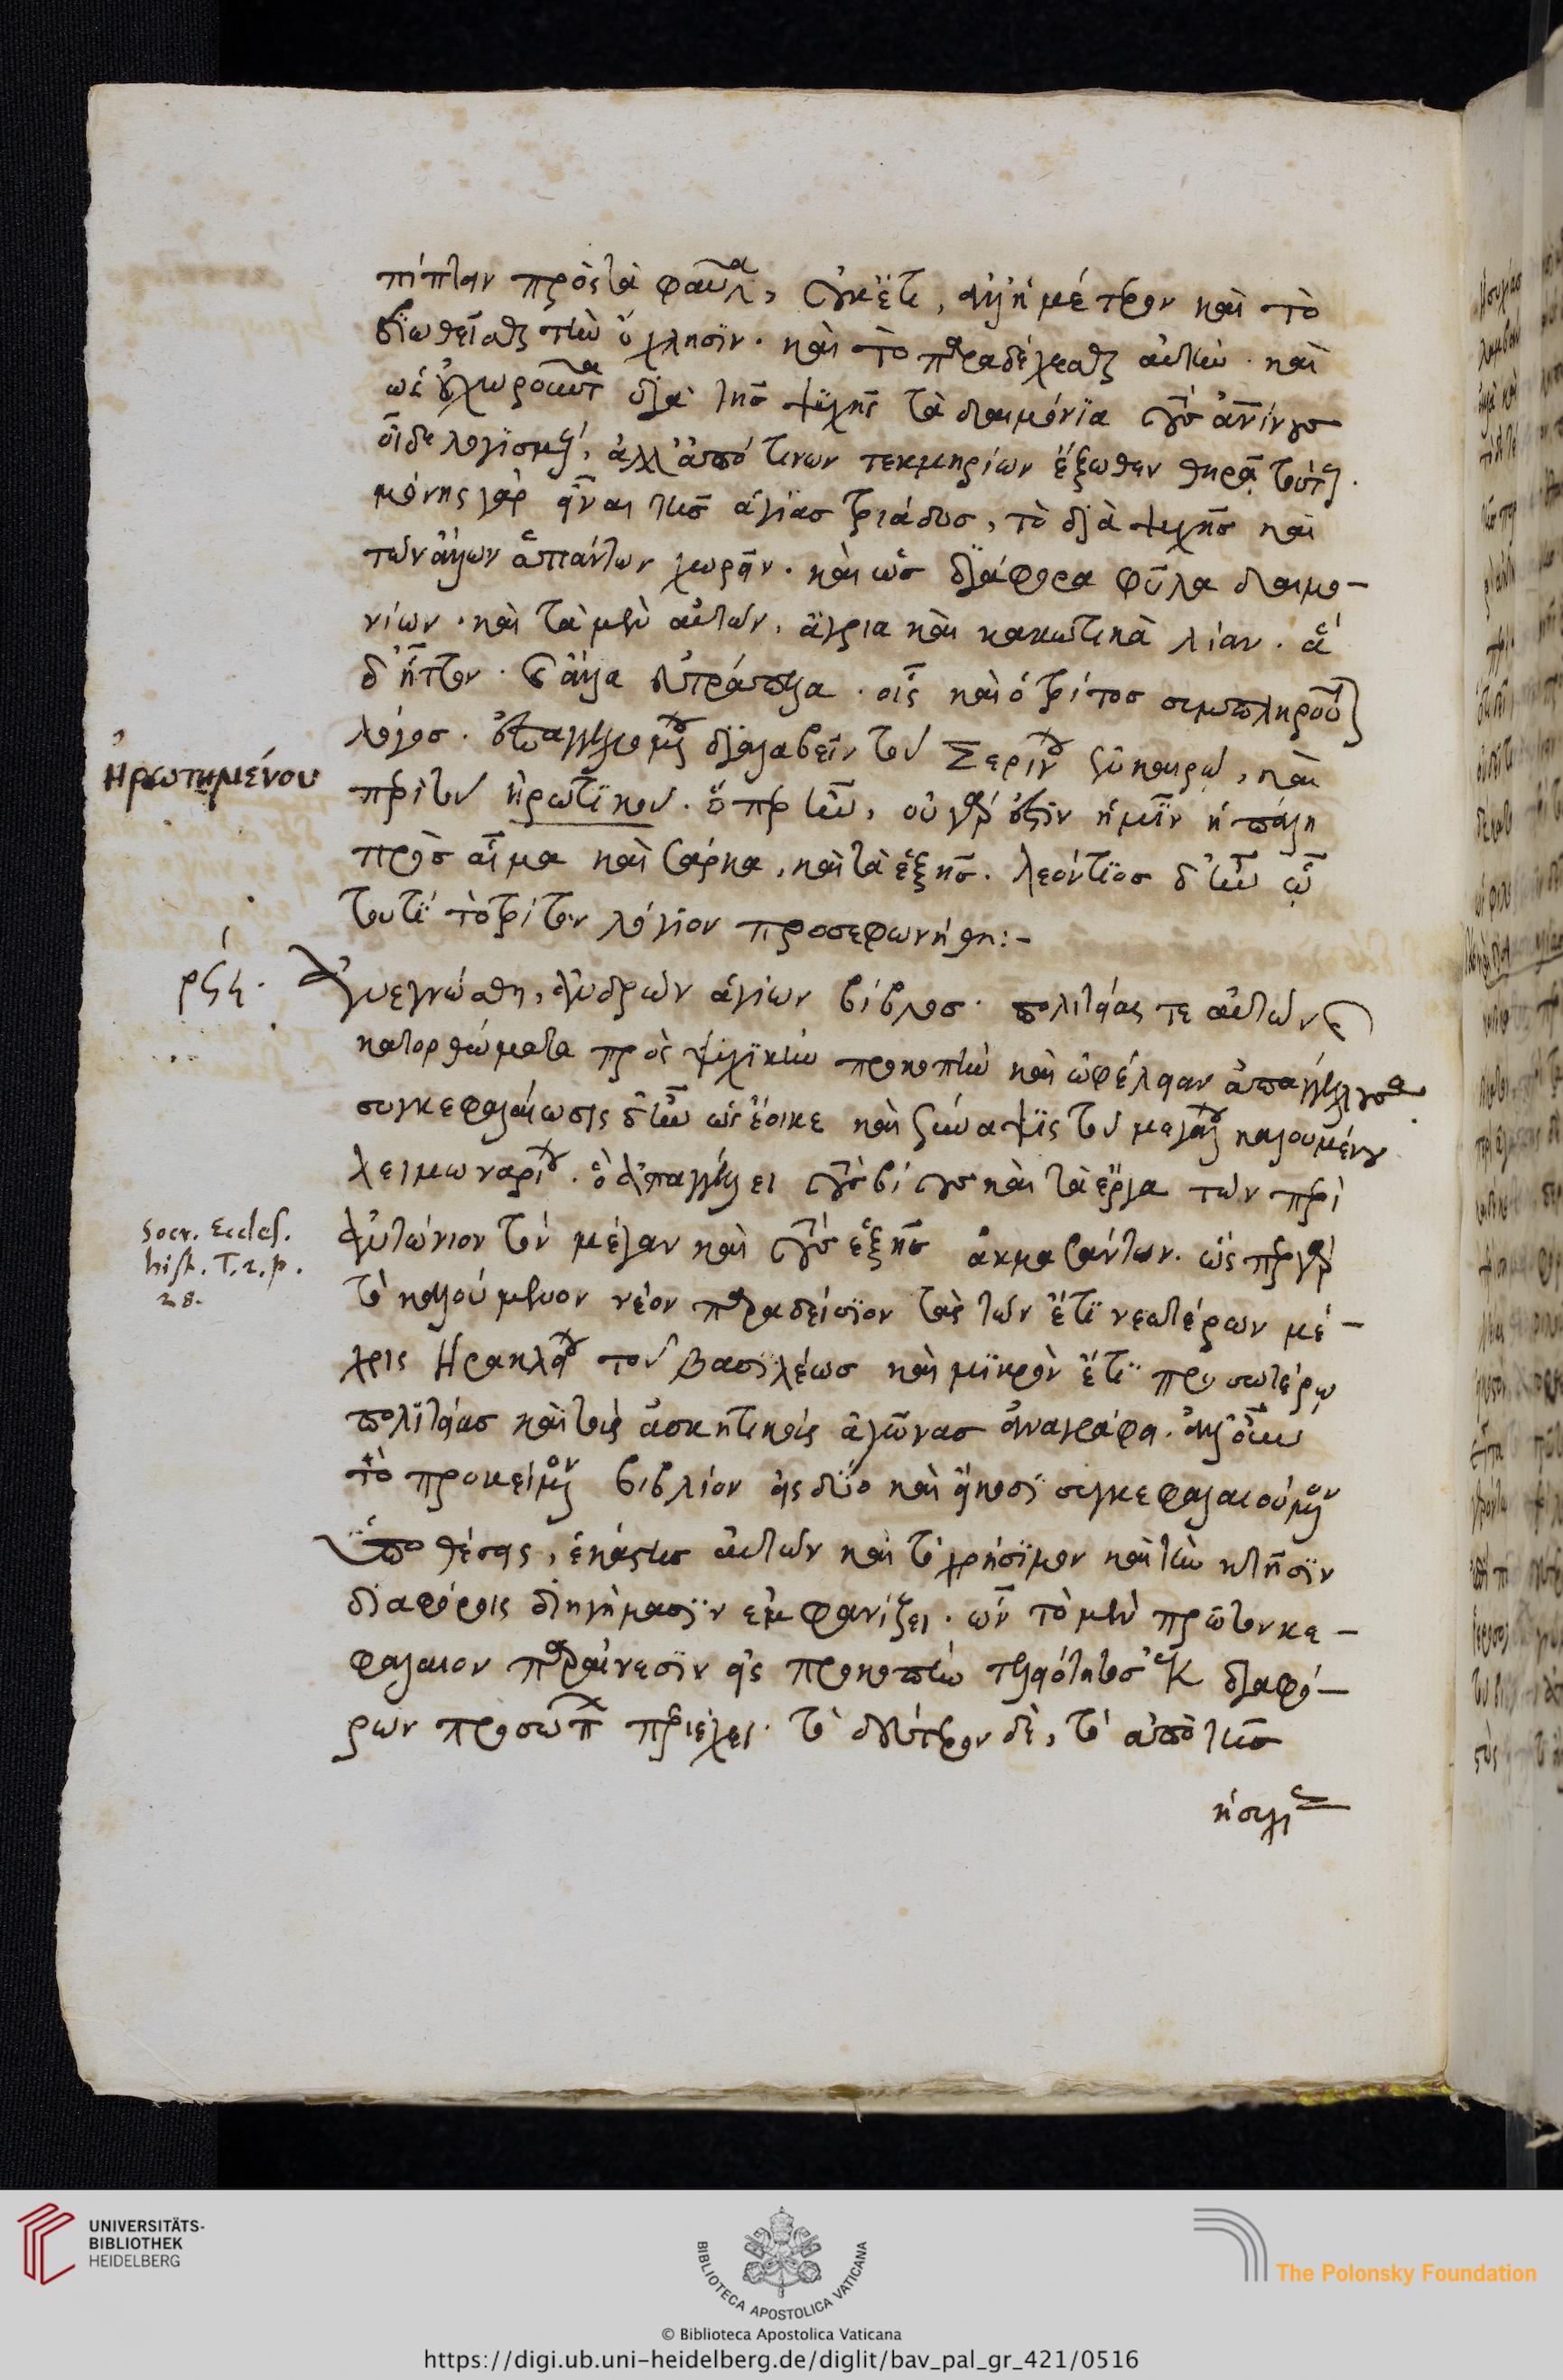 πίπτειν πρὸς τὰ φαῦλα, οὐκέτι, ἀλλ' ἡμέτερον καὶ τὸ
διωθεῖσθαι τὴν ὄχλησιν. καὶ τὸ παραδέχεσθαι αὐτήν. καὶ
ὡς οὐ χωροῦντα διὰ τῆς ψυχῆς τὰ δαιμόνια τοὺς ἀνίνους
οἶδε λογισμούς, ἀλλ' ἀπό τινων τεκμηρίων ἔξωθεν θηρᾷ τούτους.
μόνης γὰρ εἶναι τῆς ἁγίας τριάδος, τὸ διὰ ψυχῆς καὶ
τῶν ἄλλων ἁπάντων χωρεῖν. καὶ ὡς διάφορα φῦλα δαιμο-
νίων. καὶ τὰ μὲν αὐτῶν, ἄγρια καὶ κακωτικὰ λίαν. ἃ
δ' ἧττον. καὶ ἄλλα εὐτράπελα. οἷς καὶ ὁ τρίτος συμπληροῦται
λόγος. ἐπαγγειλαμένου διαλαβεῖν τοῦ Σερίνου ἐν καιρῷ, καὶ
περὶ τοῦ ἠρωτικοῦ. ὅπερ ἦν, οὐ γάρ ἐστιν ἡμῖν ἡ πάλη
πρὸς αἷμα καὶ σάρκα, καὶ τὰ ἑξῆς. λεόντιος δ' ἦν ᾧ
τουτὶ τὸ τρίτον λόγιον προσεφωνήθη:-
Ἠρωτημένου
ρϟη.
Ἀνεγνώσθη, ἀνδρῶν ἁγίων βίβλος. πολιτείας τε αὐτῶν καὶ
κατορθώματα πρὸς ψυχικὴν προκοπὴν καὶ ὠφέλειαν ἀπαγγέλλουσα.
συγκεφαλαίωσις δ' ἦν ὡς ἔοικε καὶ σύναψις τοῦ μεγάλου καλουμένου
λειμωναρίου. ὃ ἀπαγγέλλει τοὺς βίους καὶ τὰ ἔργα τῶν περὶ
ἀντώνιον τὸν μέγαν καὶ τοὺς ἑξῆς ἀκμασάντων. ὥσπερ γὰρ
τὸ καλούμενον νέον παραδείσιον τὰς τῶν ἔτι νεωτέρων μέ-
χρις Ἡρακλείου τοῦ βασιλέως καὶ μικρὸν ἔτι προσωτέρω
πολιτείας καὶ τοὺς ἀσκητικοὺς ἀγῶνας ἀναγράφει. ἀλλ' οὖν
τὸ προκείμενον βιβλίον εἰς δύο καὶ εἴκοσι συγκεφαλαιούμενον
ὑποθέσεις, ἑκάστης αὐτῶν καὶ τὸ χρήσιμον καὶ τὴν κτῆσιν
διαφόροις διηγήμασιν ἐμφανίζει. ὧν τὸ μὲν πρῶτον κε-
φαλαιον παραίνεσιν εἰς προκοπὴν τελειότητος ἐκ διαφό-
ρων προσώπων περιέχει. τὸ δεύτερον δὲ, τὸ ἀπὸ τῆς
ἡσυχίας
Socr. Eccles.
hist. T. 2. p.
28.
UNIVERSITÄTS-
BIBLIOTHEK
HEIDELBERG
BIBLIOTECA APOSTOLICA VATICANA
The Polonsky Foundation
© Biblioteca Apostolica Vaticana
https://digi.ub.uni-heidelberg.de/diglit/bav_pal_gr_421/0516